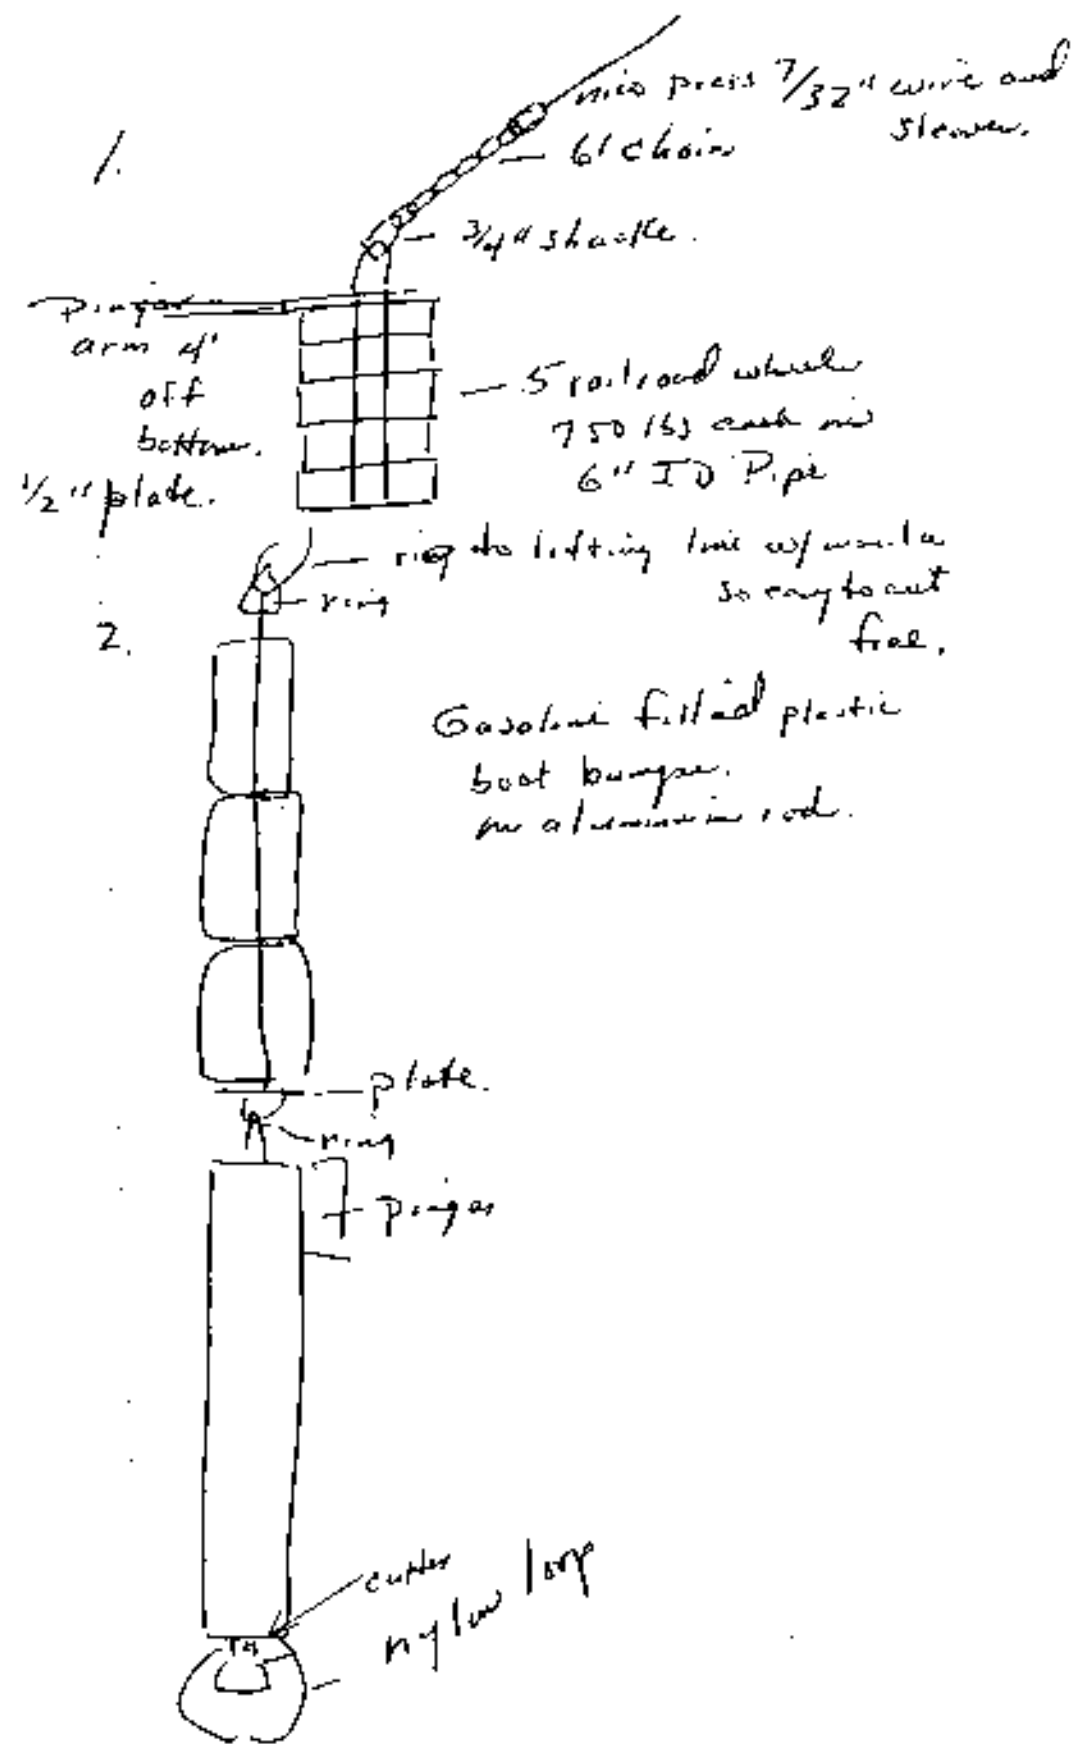 1.
nico press 7/32" wire and
sleeves.
6' chain
3/4" shackle.
Pinger
arm 4'
off
bottom.
1/2" plate.
5 railroad wheels
750 lbs each on
6" ID Pipe
2.
rig to lifting line w/
so easy to cut
free.
ring
Gasoline filled plastic
boat bumper.
on aluminum rod.
plate.
ring
Pinger
cutter
nylon loop